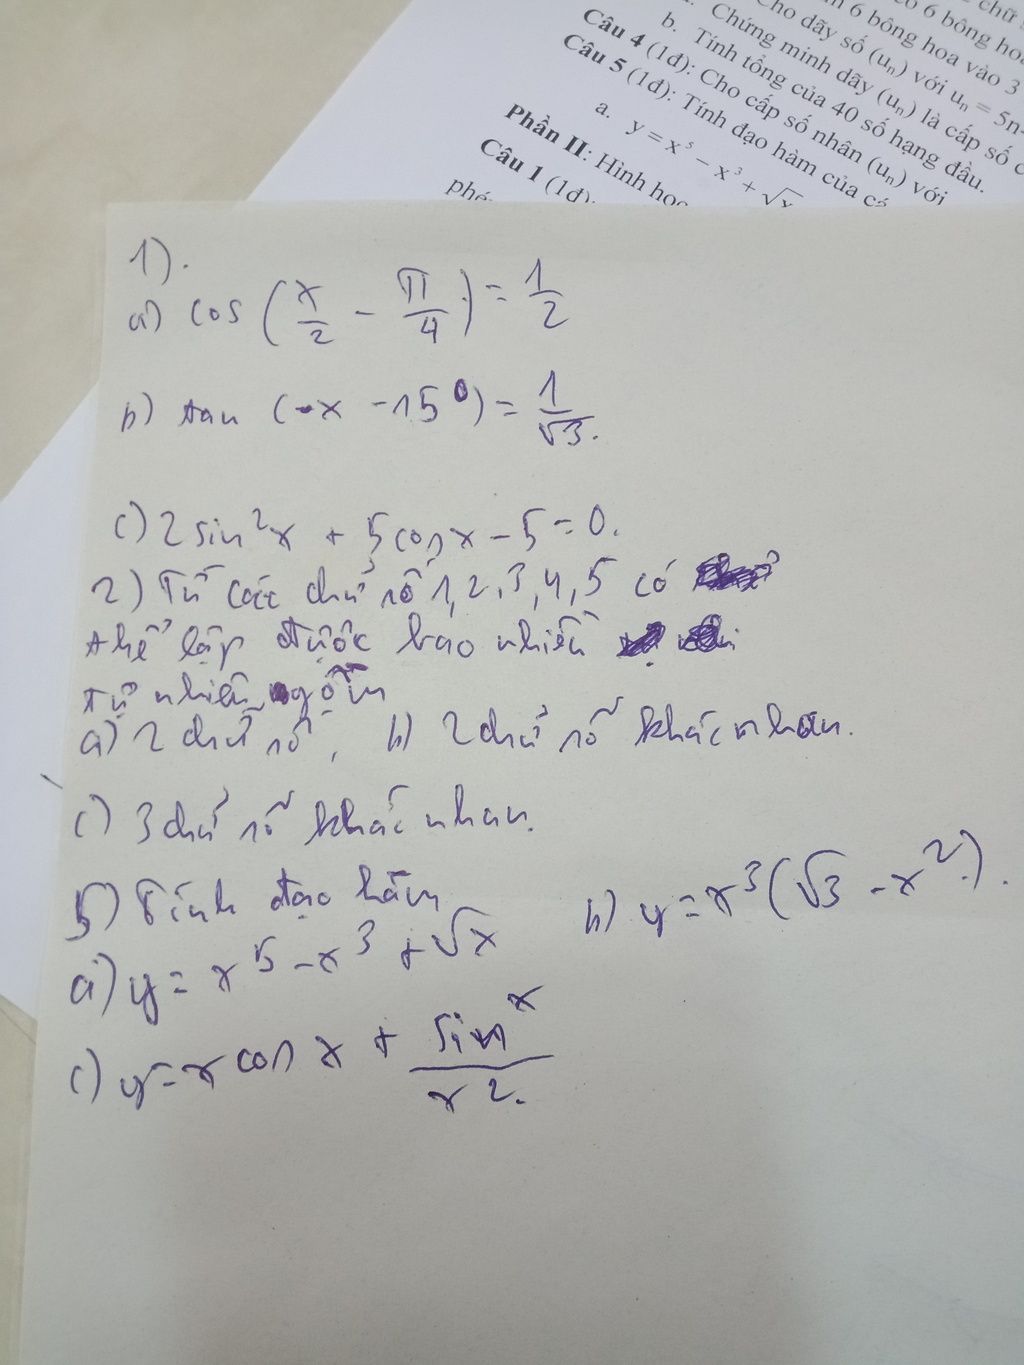 chữ
có 6 bông hoa
6 bông hoa vào 3
Cho dãy số (uₙ) với uₙ = 5n
Chứng minh dãy (uₙ) là cấp số c
b. Tính tổng của 40 số hạng đầu.
Câu 4 (1đ): Cho cấp số nhân (uₙ) với
Câu 5 (1đ): Tính đạo hàm của cá
a. y = x⁵ − x³ + √x
Phần II: Hình học
Câu 1 (1đ):
1).
a) cos (x/2 − π/4) = 1/2
b) tan (-x − 15⁰) = 1/√3.
c) 2 sin²x + 5 cos x − 5 = 0.
2) Từ các chữ số 1, 2, 3, 4, 5 có
thể lập được bao nhiêu
tự nhiên gồm
a) 2 chữ số, b) 2 chữ số khác nhau.
c) 3 chữ số khác nhau.
5) Tính đạo hàm
a) y = x⁵ − x³ + √x b) y = x³(√3 − x²).
c) y = x cos x + sin x / x².